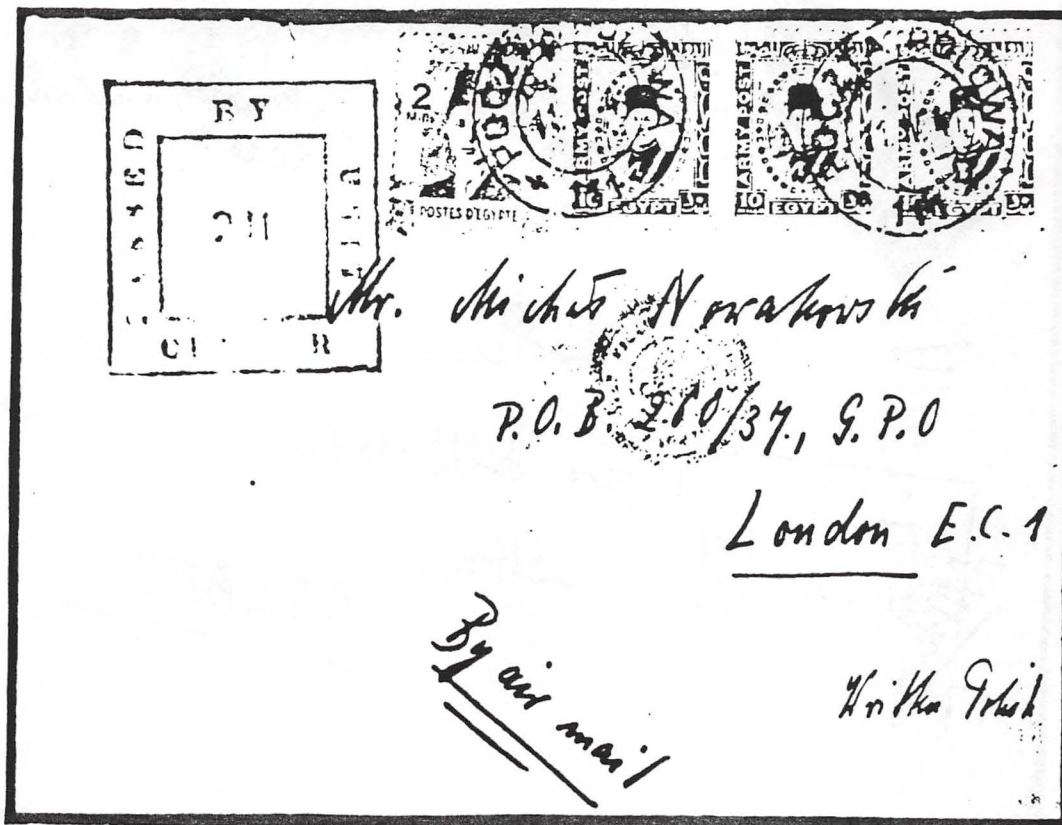 BY
PASSED
211
2
POSTES D'EGYPTE
ARMY POST
10 EGYPT
ARMY POST
10 EGYPT
ARMY POST
EGYPT
Mr. Michał Nowakowski
P.O.B. 260/37, G.P.O
London E.C. 1
By air mail
Written Polish